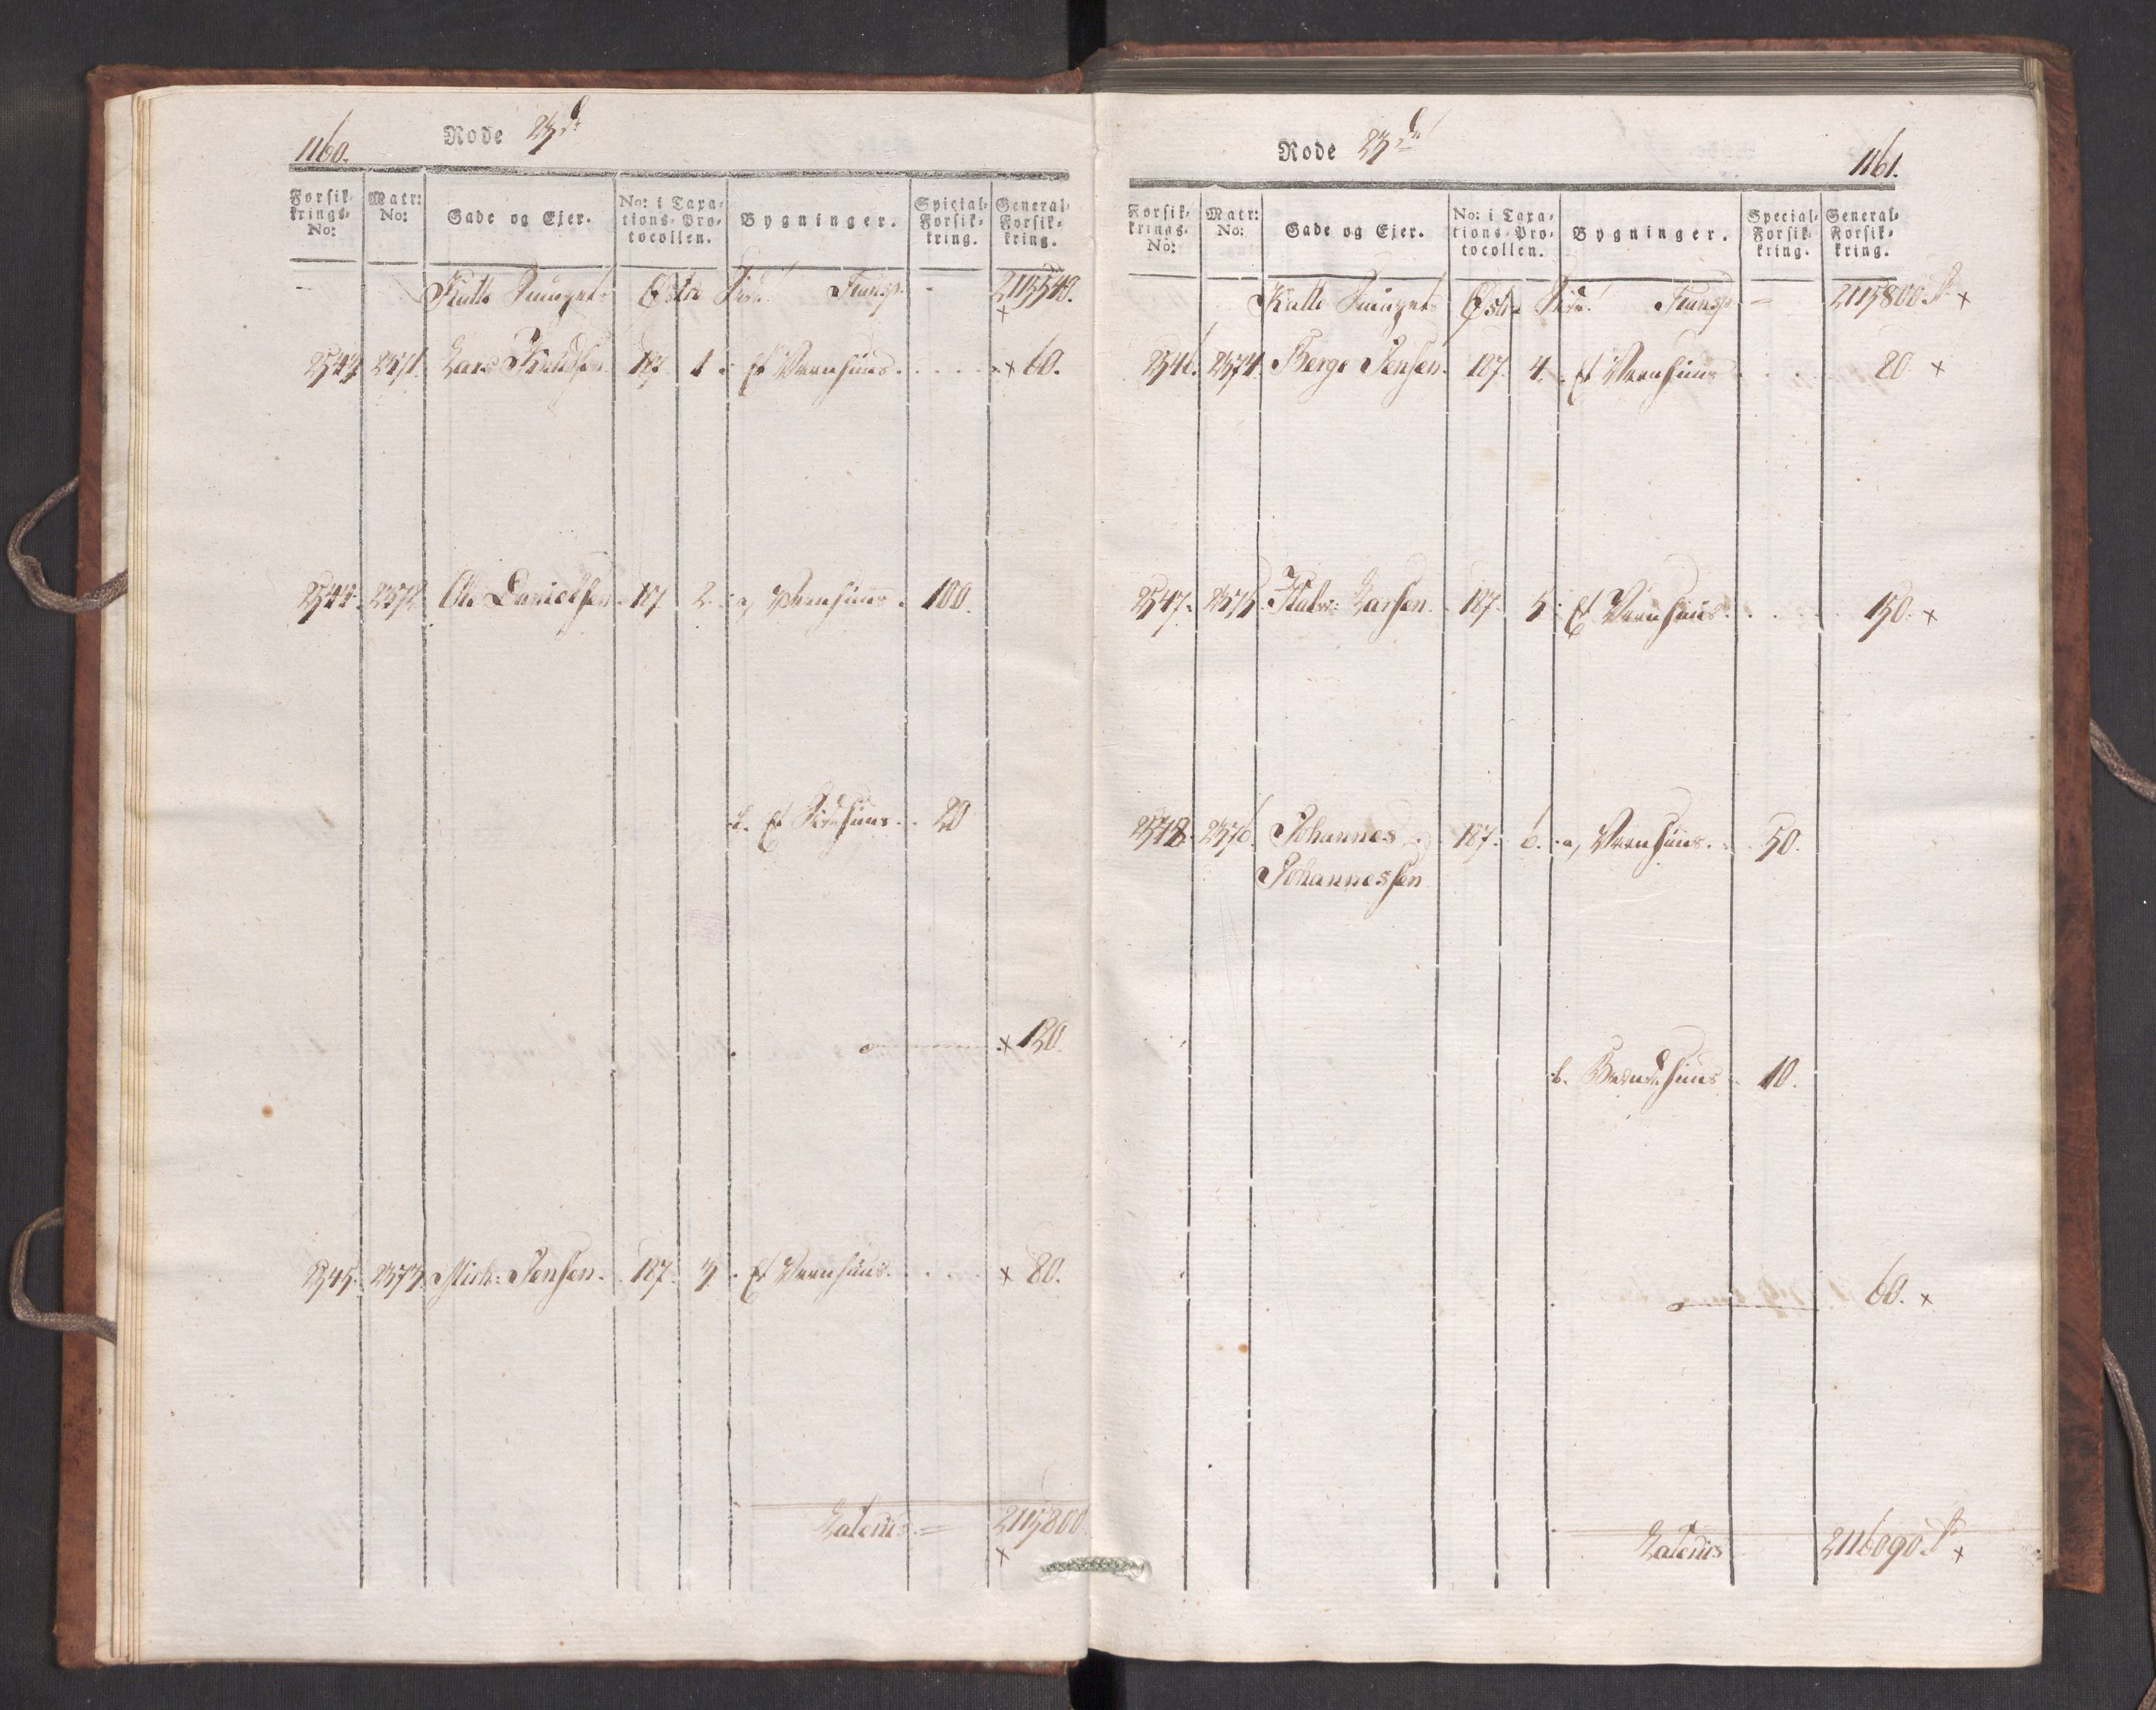 1160.
Rode 23de
Forsikrings No: Matr: No: Gade og Ejer. No: i Taxations-Protocollen. Bygninger. Special-Forsikring. General-Forsikring.
Østre Side Transp. - 2115540.
2543 2371. Lars Knudsen 187 1. Et Vaanhuus. . . . . x 60.
2544. 2372. Ole Danielsen. 187 2. a, Vaanhuus. 100.
b. Et Sidehuus. 20
x 120.
2545. 2373. Mich: Jensen. 187. 3. Et Vaanhuus. . . . . x 80.
Lateris = 2115800
x
Rode 23de
1161.
Forsikrings No: Matr: No: Gade og Ejer. No: i Taxations-Protocollen. Bygninger. Special-Forsikring. General-Forsikring.
Østre Side Transp = 2115800 x
2546. 2374. Berge Jensen. 187. 4. Et Vaanhuus . . . . 80 x
2547. 2375. Halv: Larsen. 187. 5. Et Vaanhuus. . . . . 150. x
2548. 2376. Johannes 187. 6. a, Vaanhuus. 50.
Johannessen
b. 10.
60. x
Lateris 2116090 x